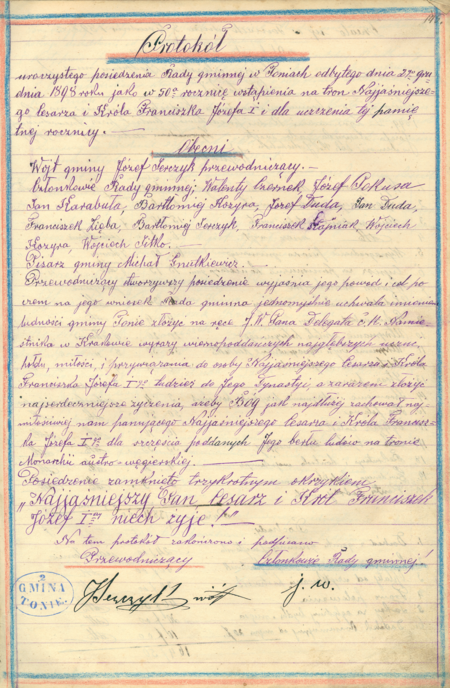 Protokół
uroczystego posiedzenia Rady gminnej w Toniach odbytego dnia 2go gru
dnia 1898 roku jako w 50tą rocznicę wstąpienia na tron Najjaśniejsze-
go Cesarza i Króla Franciszka Józefa I i dla uczczenia tej pamię
tnej rocznicy. —
Obecni
Wójt gminy Józef Serczyk przewodniczący. —
Członkowie Rady gminnej, Walenty Czernek, Józef
Jan Karabuła, Bartłomiej Kozyra, Józef Duda, Jan Duda,
Franciszek Zięba, Bartłomiej Serczyk, Franciszek Wojciech
Kozyra, Wojciech Sitko. —
Pisarz gminy Michał Gnutkiewicz. —
Przewodniczący otworzywszy posiedzenie wyjaśnia jego powód i cel po
czem na jego wniosek Rada gminna jednomyślnie uchwala imieniem
ludności gminy Tonie złożyć na ręce J. W. Pana Delegata c. k. Namie
stnika w Krakowie wyrazy wiernopoddańczych najgłębszych uczuć
hołdu, miłości, i przywiązania do osoby Najjaśniejszego Cesarza i Króla
Franciszka Józefa I tudzież do Jego Dynastyi a zarazem złożyć
najserdeczniejsze życzenia, ażeby Bóg jak najdłużej zachował naj
miłościwiej nam panującego Najjaśniejszego Cesarza i Króla Francisz-
ka Józefa I dla szczęścia poddanych Jego berłu ludów na tronie
Monarchii austro-węgierskiej. —
Posiedzenie zamknięto trzykrotnym okrzykiem
„Najjaśniejszy Pan Cesarz i Król Franciszek
Józef I niech żyje!" —
Na tem protokół zakończono i podpisano
Przewodniczący Członkowie Rady gminnej!
GMINA
TONIE.
JSerczyk wójt j. w.